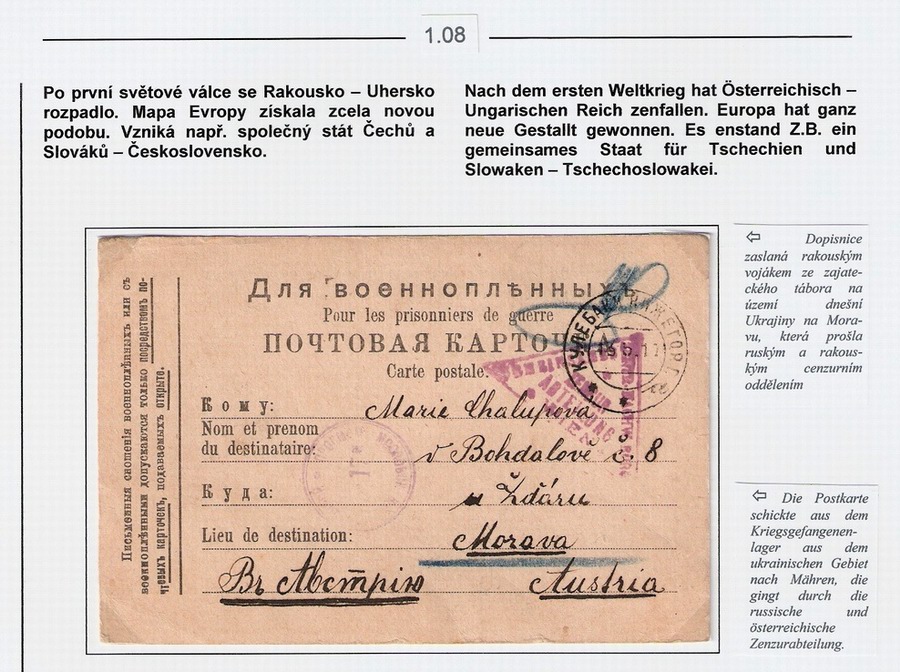 1.08
Po první světové válce se Rakousko – Uhersko
rozpadlo. Mapa Evropy získala zcela novou
podobu. Vzniká např. společný stát Čechů a
Slováků – Československo.
Nach dem ersten Weltkrieg hat Österreichisch –
Ungarischen Reich zenfallen. Europa hat ganz
neue Gestallt gewonnen. Es enstand Z.B. ein
gemeinsames Staat für Tschechien und
Slowaken – Tschechoslowakei.
⇦ Dopisnice
zaslaná rakouským
vojákem ze zajate-
ckého tábora na
území dnešní
Ukrajiny na Mora-
vu, která prošla
ruským a rakous-
kým cenzurním
oddělením
⇦ Die Postkarte
schickte aus dem
Kriegsgefangenen-
lager aus dem
ukrainischen Gebiet
nach Mähren, die
gingt durch die
russische und
österreichische
Zenzurabteilung.
Письменныя сношенія военноплѣнныхъ или съ
военноплѣнными допускаются только посредствомъ по-
чтовыхъ карточекъ, подаваемыхъ открыто.
Для военноплѣнныхъ
Pour les prisonniers de guerre
ПОЧТОВАЯ КАРТОЧ
Carte postale.
Кому: Marie Chalupova
Nom et prenom
du destinataire: v Bohdalově č. 8
Куда: u Žďáru
Lieu de destination: Morava
Въ Австрію Austria
КУЛЕБАКИ НИЖЕГОР.
ABTEILUNG
WIEN